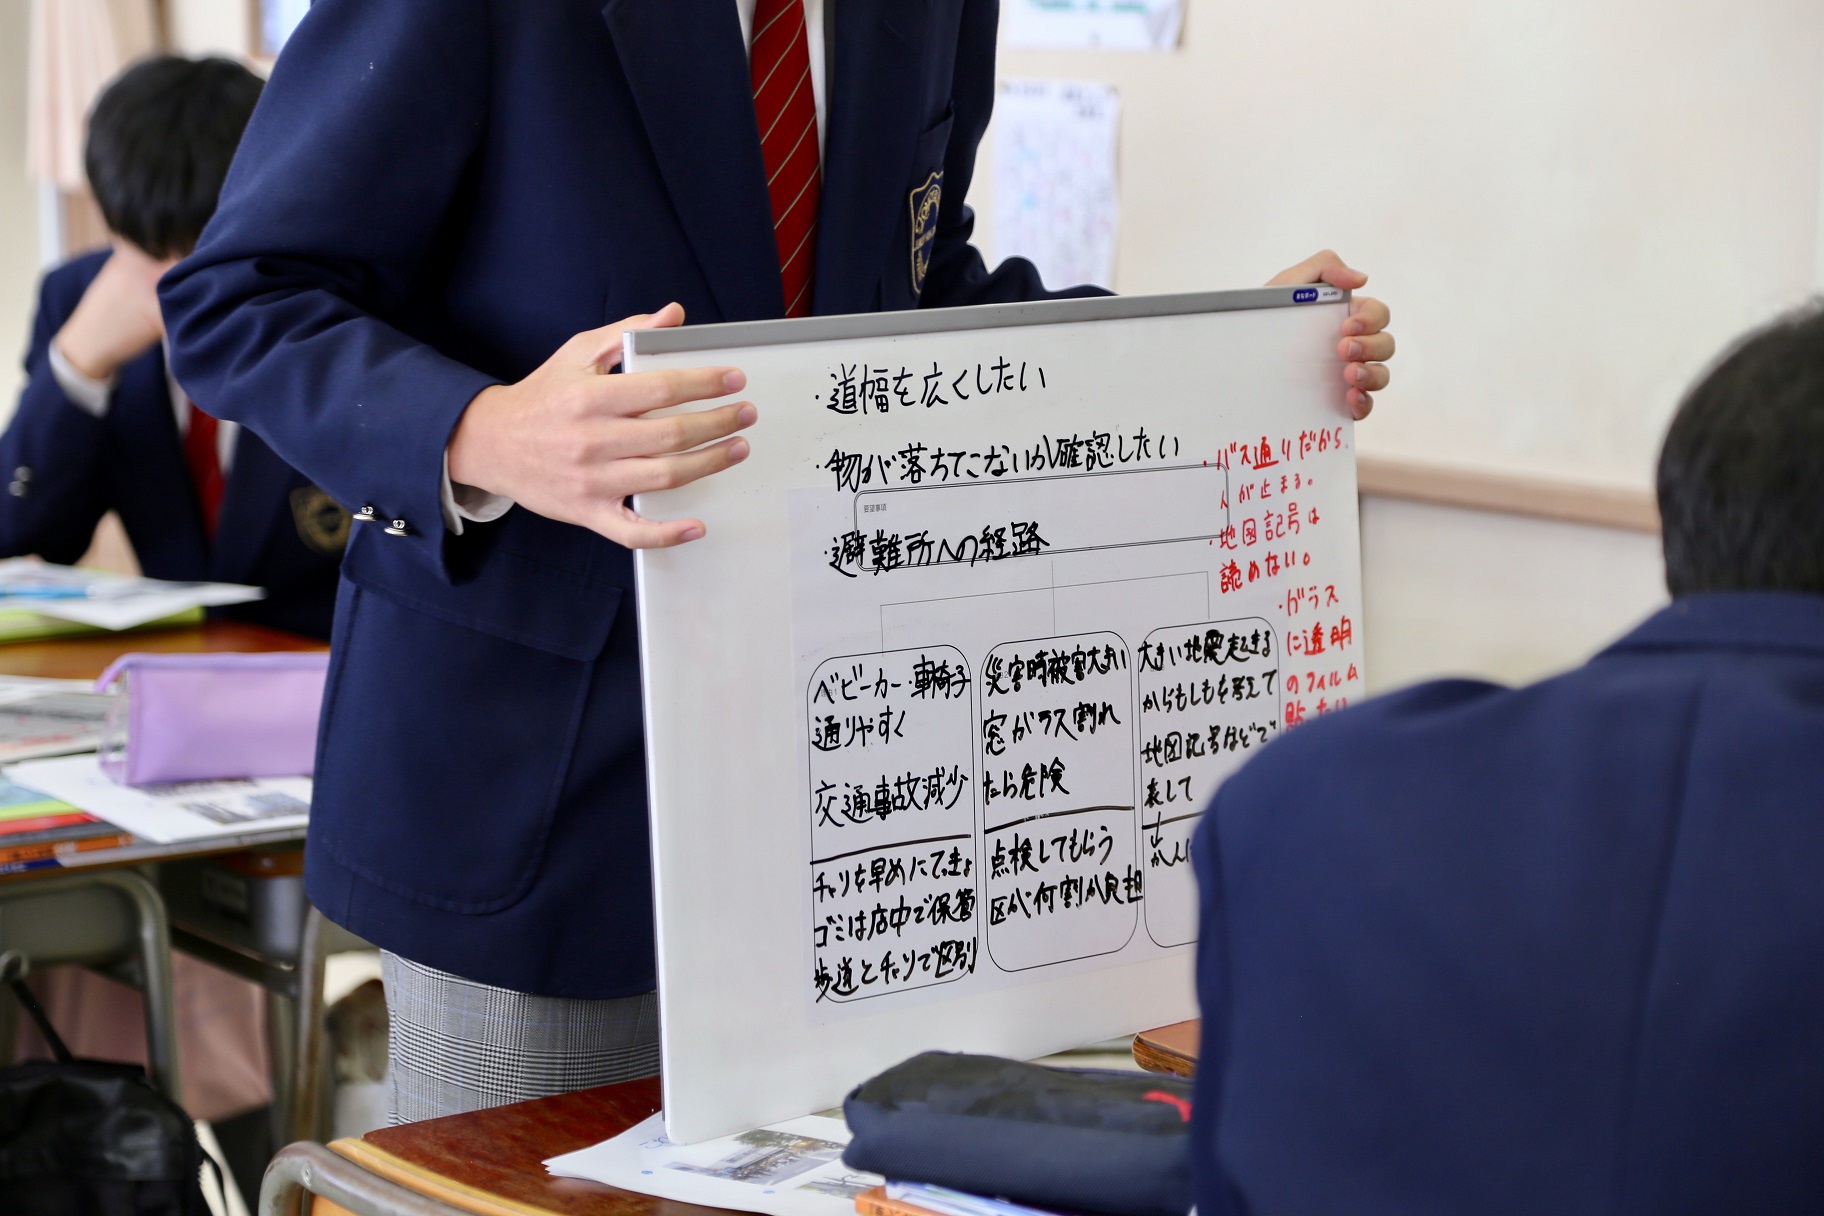 ・道幅を広くしたい
・物が落ちてこないか確認したい
要望事項
・避難所への経路
ベビーカー・車椅子
通りやすく
交通事故減少
チャリを早めにてっきょ
ゴミは店中で保管
歩道とチャリで区別
災害時被害大きい
窓ガラス割れ
たら危険
点検してもらう
区が何割か負担
大きい地震起きる
からもしもを考えて
地図記号などで
表して
↓
・バス通りだから
人が止まる。
・地図記号は
読めない。
・ガラス
に透明
のフィルム
貼りたい